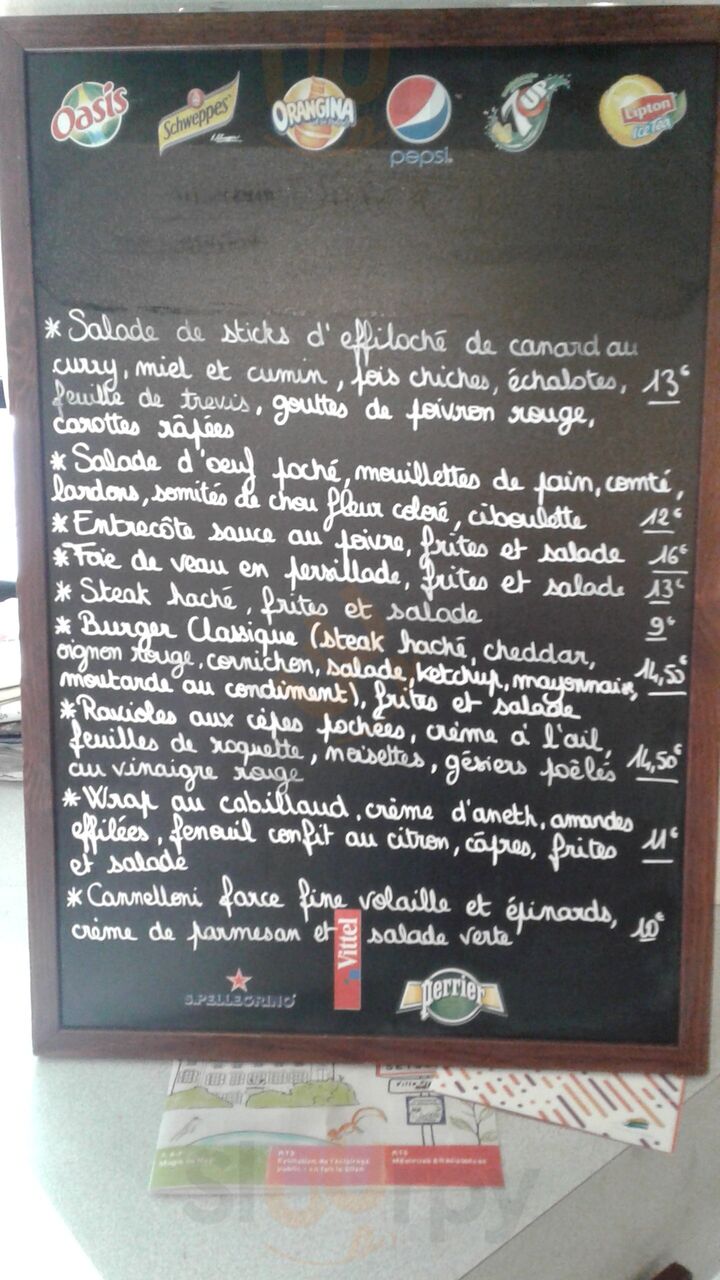 Oasis Schweppes ORANGINA pepsi 7UP Lipton Ice Tea
* Salade de sticks d'effiloché de canard au
curry, miel et cumin, pois chiches, échalotes, 13€
feuille de trevis, gouttes de poivron rouge,
carottes râpées
* Salade d'oeuf poché, mouillettes de pain, comté,
lardons, somités de chou fleur coloré, ciboulette 12€
* Entrecôte sauce au poivre, frites et salade 16€
* Foie de veau en persillade, frites et salade 13€
* Steak haché, frites et salade 9€
* Burger Classique (steak haché, cheddar,
oignon rouge, cornichon, salade, ketchup, mayonnaise, 14,50€
moutarde au condiment), frites et salade
* Ravioles aux cèpes pochées, crème à l'ail,
feuilles de roquette, noisettes, gésiers poêlés 14,50€
au vinaigre rouge
* Wrap au cabillaud, crème d'aneth, amandes
effilées, fenouil confit au citron, câpres, frites 11€
et salade
* Cannelloni farce fine volaille et épinards, 10€
crème de parmesan et salade verte
Vittel
S.PELLEGRINO perrier
slourpy